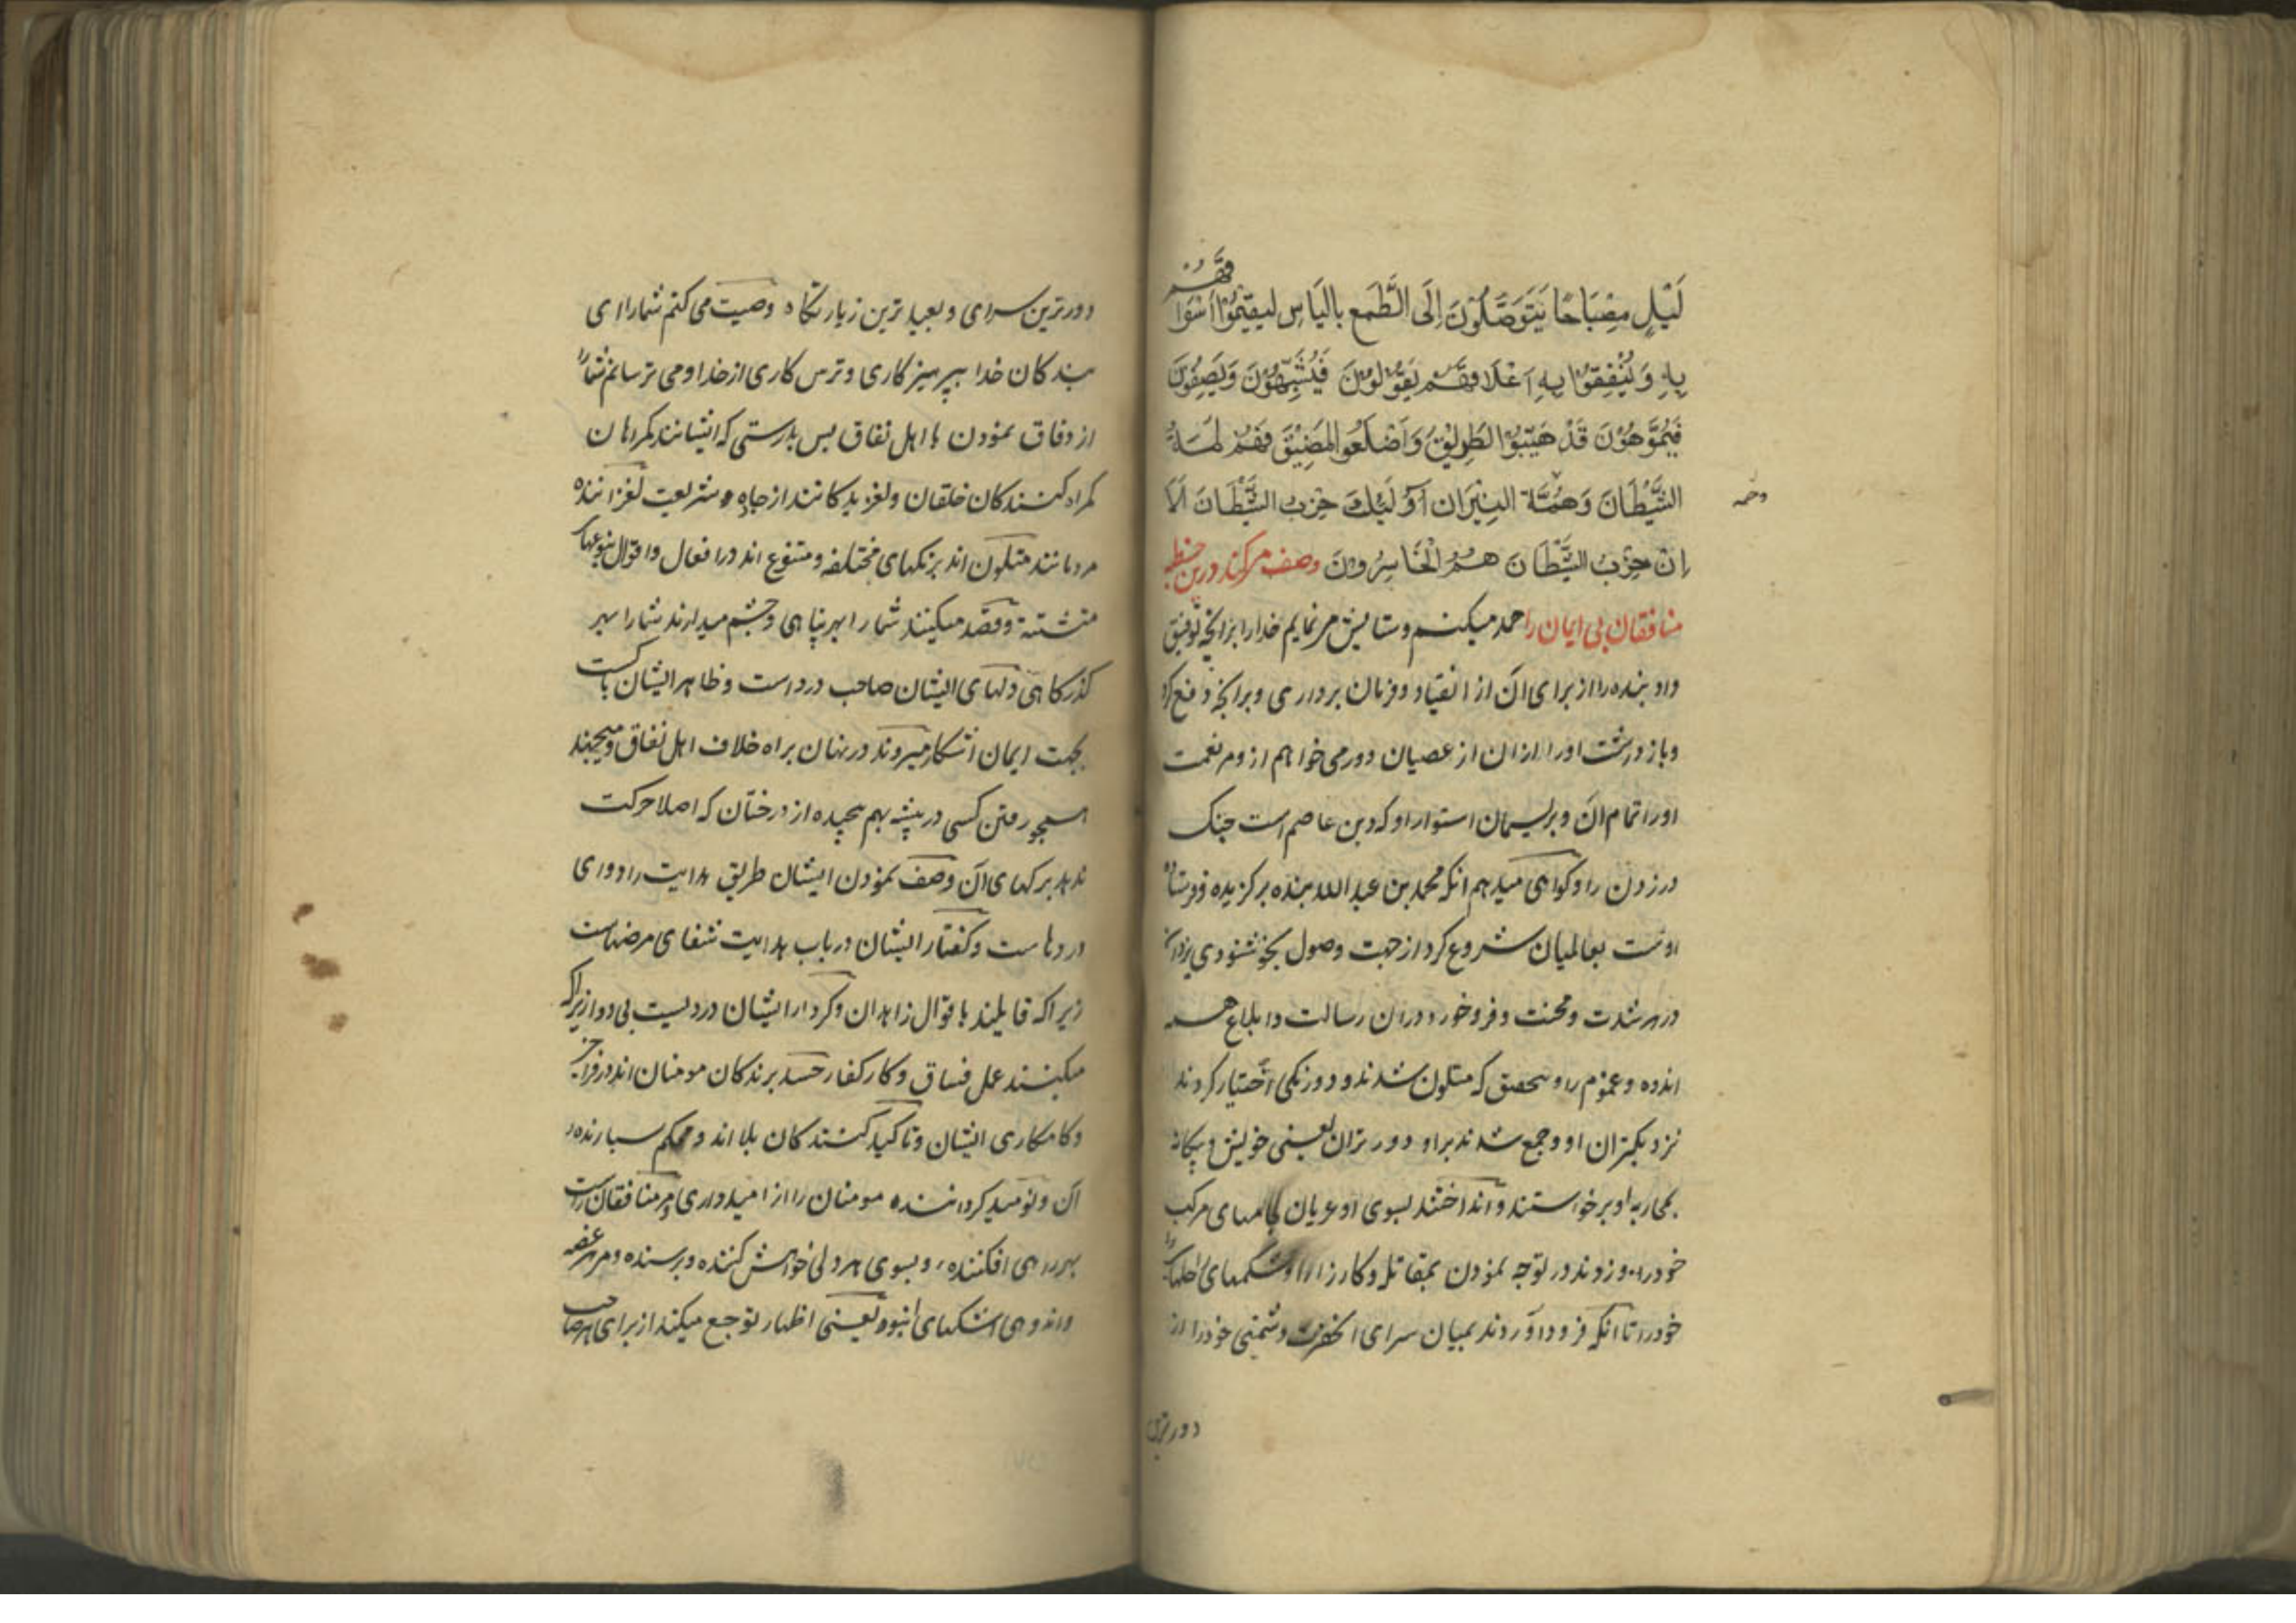 لَيْلٍ مِصْبَاحًا يَتَوَصَّلُوْنَ اِلَى الطَّمَعِ بِاليَاسِ لِيقِيمُوْا اَسْوَا
قَهُمْ
بِهِ وَ يُنْفِقُوْا بِهِ اَعْلَاقَهُمْ يَقُوْلُوْنَ فَيُشَبِّهُوْنَ وَيَصِفُوْنَ
فَيُمَوِّهُوْنَ قَدْ هَيَّبُوْا الطَّرِيْقَ وَ اَضْلَعُوا المَضِيْقَ فَهُمْ لُمَةُ
الشَّيْطَانَ وَ حُمَّة النِيْرَان اُوْلَئِكَ حِزْبُ الشَّيْطَانَ اَلَا
وحمه
اِنَّ حِزْبُ الشَّيْطَانَ هُمُ الْخَاسِرُونَ وصف میکند درین خطبه
منافقان بی ایمان را حمد میکنم و ستایش مینمایم خدا را بر آنچه توفیق
داد بنده را از برای آن از انقیاد و فرمان برداری و بر آنچه دفع کرد
و باز داشت او را از ان از عصیان و در می خواهم از و مر نعمت
او را تمام آن و بریسمان استوار او که دین عاصم است چنگ
در زدن را و گواهی میدهم انکه محمد بن عبد الله بنده برگزیده و فرستاده
اوست بعالمیان شروع کرد از جهت وصول بخوشنودی یزدان
در هر شدت و محنت و فرو خورد در ان رسالت و ابلاغ همه
اندوه و غموم را و بتحقیق که متلون شدند و دو رنگی اختیار کردند
نزدیکتران او و جمع شدند بر او دورتران یعنی خویش و بیگانه
بمحاربه او بر خواستند و انداختند بسوی او عریان لجامهای مرکب
خود را و زدند در توجه نمودن بمقاتله و کارزار او شکمهای راحلهای
خود را تا انکه فرود آوردند بمیان سرای انحضرت دشمنی خود را از
دورترین
دورترین سرای و بعید ترین زیارتگاه وصیت می کنم شما را ای
بندگان خدا بپرهیز کاری و ترس کاری از خدا و می ترسانم شما را
از وفاق نمودن با اهل نفاق پس بدرستی که ایشانند گمراهان
گمراه کنندگان خلقان و لغزیدگانند از جاده شریعت لغزاننده
مردمانند متلون اند برنگهای مختلفه و متنوع اند در افعال و اقوال بنوعهای
متشتته و قصد میکنند شما را بهر پناهی و چشم میدارند شما را بهر
گذرگاهی دلهای ایشان صاحب درد است و ظاهر ایشان پاکست
بجهت ایمان آشکار میروند در پنهان براه خلاف اهل نفاق و میجنبند
همچو رفتن کسی در بیشه بهم پیچیده از درختان که اصلا حرکت
ندهد برگهای آن وصف نمودن ایشان طریق هدایت را دوای
دردهاست و گفتار ایشان در باب هدایت شفای مرضهاست
زیرا که قایلند باقوال زاهدان و کردار ایشان دردیست بی دوا زیرا که
میکنند عمل فساق و کار کفار حسد برندگان مومنان اند در فراخی
و کامکاری ایشان و تاکید کنندگان بلا اند و محکم سازنده
آن و نومید گرداننده مومنان را از امیدواری و مر منافقان راست
بهر راهی افکنده و بسوی هر دلی خواهش کننده و رسنده و مر هر غصه
و اندوهی اشکهای انبوه یعنی اظهار توجع میکنند از برای هر صاحب